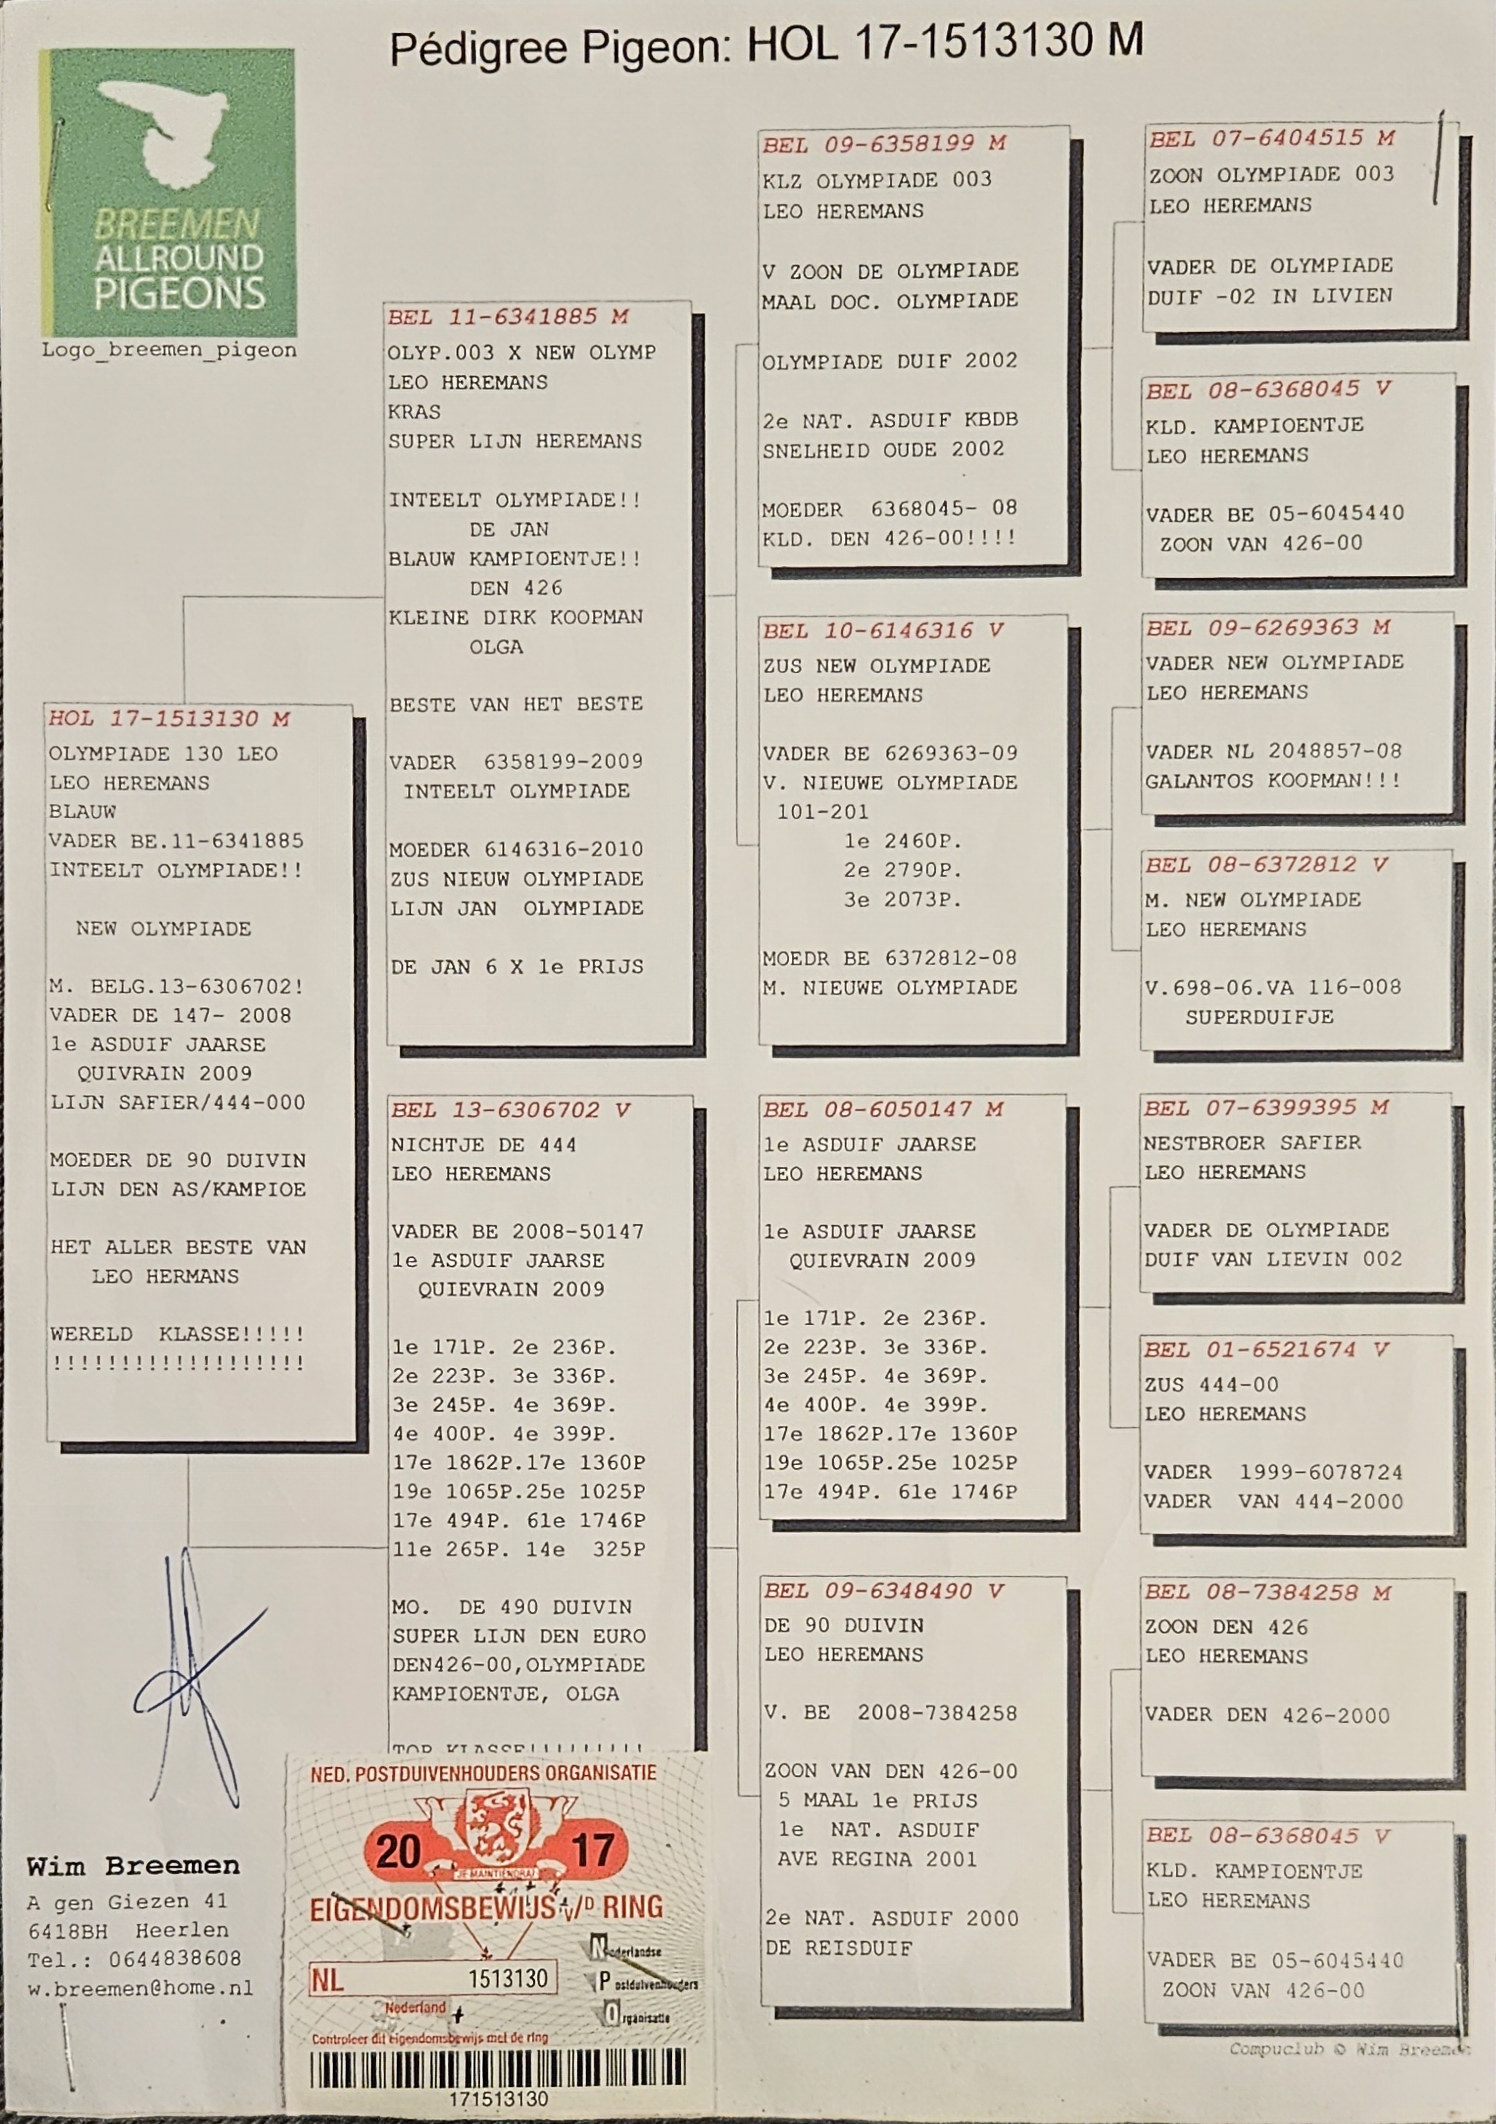 Pédigree Pigeon: HOL 17-1513130 M
BREEMEN
ALLROUND
PIGEONS
Logo_breemen_pigeon
HOL 17-1513130 M
OLYMPIADE 130 LEO
LEO HEREMANS
BLAUW
VADER BE.11-6341885
INTEELT OLYMPIADE!!
NEW OLYMPIADE
M. BELG.13-6306702!
VADER DE 147- 2008
1e ASDUIF JAARSE
QUIVRAIN 2009
LIJN SAFIER/444-000
MOEDER DE 90 DUIVIN
LIJN DEN AS/KAMPIOE
HET ALLER BESTE VAN
LEO HERMANS
WERELD KLASSE!!!!!
!!!!!!!!!!!!!!!!!!!
BEL 11-6341885 M
OLYP.003 X NEW OLYMP
LEO HEREMANS
KRAS
SUPER LIJN HEREMANS
INTEELT OLYMPIADE!!
DE JAN
BLAUW KAMPIOENTJE!!
DEN 426
KLEINE DIRK KOOPMAN
OLGA
BESTE VAN HET BESTE
VADER 6358199-2009
INTEELT OLYMPIADE
MOEDER 6146316-2010
ZUS NIEUW OLYMPIADE
LIJN JAN OLYMPIADE
DE JAN 6 X 1e PRIJS
BEL 13-6306702 V
NICHTJE DE 444
LEO HEREMANS
VADER BE 2008-50147
1e ASDUIF JAARSE
QUIEVRAIN 2009
1e 171P. 2e 236P.
2e 223P. 3e 336P.
3e 245P. 4e 369P.
4e 400P. 4e 399P.
17e 1862P.17e 1360P
19e 1065P.25e 1025P
17e 494P. 61e 1746P
11e 265P. 14e 325P
MO. DE 490 DUIVIN
SUPER LIJN DEN EURO
DEN426-00,OLYMPIADE
KAMPIOENTJE, OLGA
TOP KLASSE!!!!!!!!!
BEL 09-6358199 M
KLZ OLYMPIADE 003
LEO HEREMANS
V ZOON DE OLYMPIADE
MAAL DOC. OLYMPIADE
OLYMPIADE DUIF 2002
2e NAT. ASDUIF KBDB
SNELHEID OUDE 2002
MOEDER 6368045- 08
KLD. DEN 426-00!!!!
BEL 10-6146316 V
ZUS NEW OLYMPIADE
LEO HEREMANS
VADER BE 6269363-09
V. NIEUWE OLYMPIADE
101-201
1e 2460P.
2e 2790P.
3e 2073P.
MOEDR BE 6372812-08
M. NIEUWE OLYMPIADE
BEL 08-6050147 M
1e ASDUIF JAARSE
LEO HEREMANS
1e ASDUIF JAARSE
QUIEVRAIN 2009
1e 171P. 2e 236P.
2e 223P. 3e 336P.
3e 245P. 4e 369P.
4e 400P. 4e 399P.
17e 1862P.17e 1360P
19e 1065P.25e 1025P
17e 494P. 61e 1746P
BEL 09-6348490 V
DE 90 DUIVIN
LEO HEREMANS
V. BE 2008-7384258
ZOON VAN DEN 426-00
5 MAAL 1e PRIJS
1e NAT. ASDUIF
AVE REGINA 2001
2e NAT. ASDUIF 2000
DE REISDUIF
BEL 07-6404515 M
ZOON OLYMPIADE 003
LEO HEREMANS
VADER DE OLYMPIADE
DUIF -02 IN LIVIEN
BEL 08-6368045 V
KLD. KAMPIOENTJE
LEO HEREMANS
VADER BE 05-6045440
ZOON VAN 426-00
BEL 09-6269363 M
VADER NEW OLYMPIADE
LEO HEREMANS
VADER NL 2048857-08
GALANTOS KOOPMAN!!!
BEL 08-6372812 V
M. NEW OLYMPIADE
LEO HEREMANS
V.698-06.VA 116-008
SUPERDUIFJE
BEL 07-6399395 M
NESTBROER SAFIER
LEO HEREMANS
VADER DE OLYMPIADE
DUIF VAN LIEVIN 002
BEL 01-6521674 V
ZUS 444-00
LEO HEREMANS
VADER 1999-6078724
VADER VAN 444-2000
BEL 08-7384258 M
ZOON DEN 426
LEO HEREMANS
VADER DEN 426-2000
BEL 08-6368045 V
KLD. KAMPIOENTJE
LEO HEREMANS
VADER BE 05-6045440
ZOON VAN 426-00
Compuclub © Wim Breemen
Wim Breemen
A gen Giezen 41
6418BH Heerlen
Tel.: 0644838608
w.breemen@home.nl
NED. POSTDUIVENHOUDERS ORGANISATIE
20 17
JE MAINTIENDRAI
EIGENDOMSBEWIJS v/D RING
NL 1513130
Nederland
Nederlandse
Postduivenhouders
Organisatie
Controleer dit eigendomsbewijs met de ring
171513130